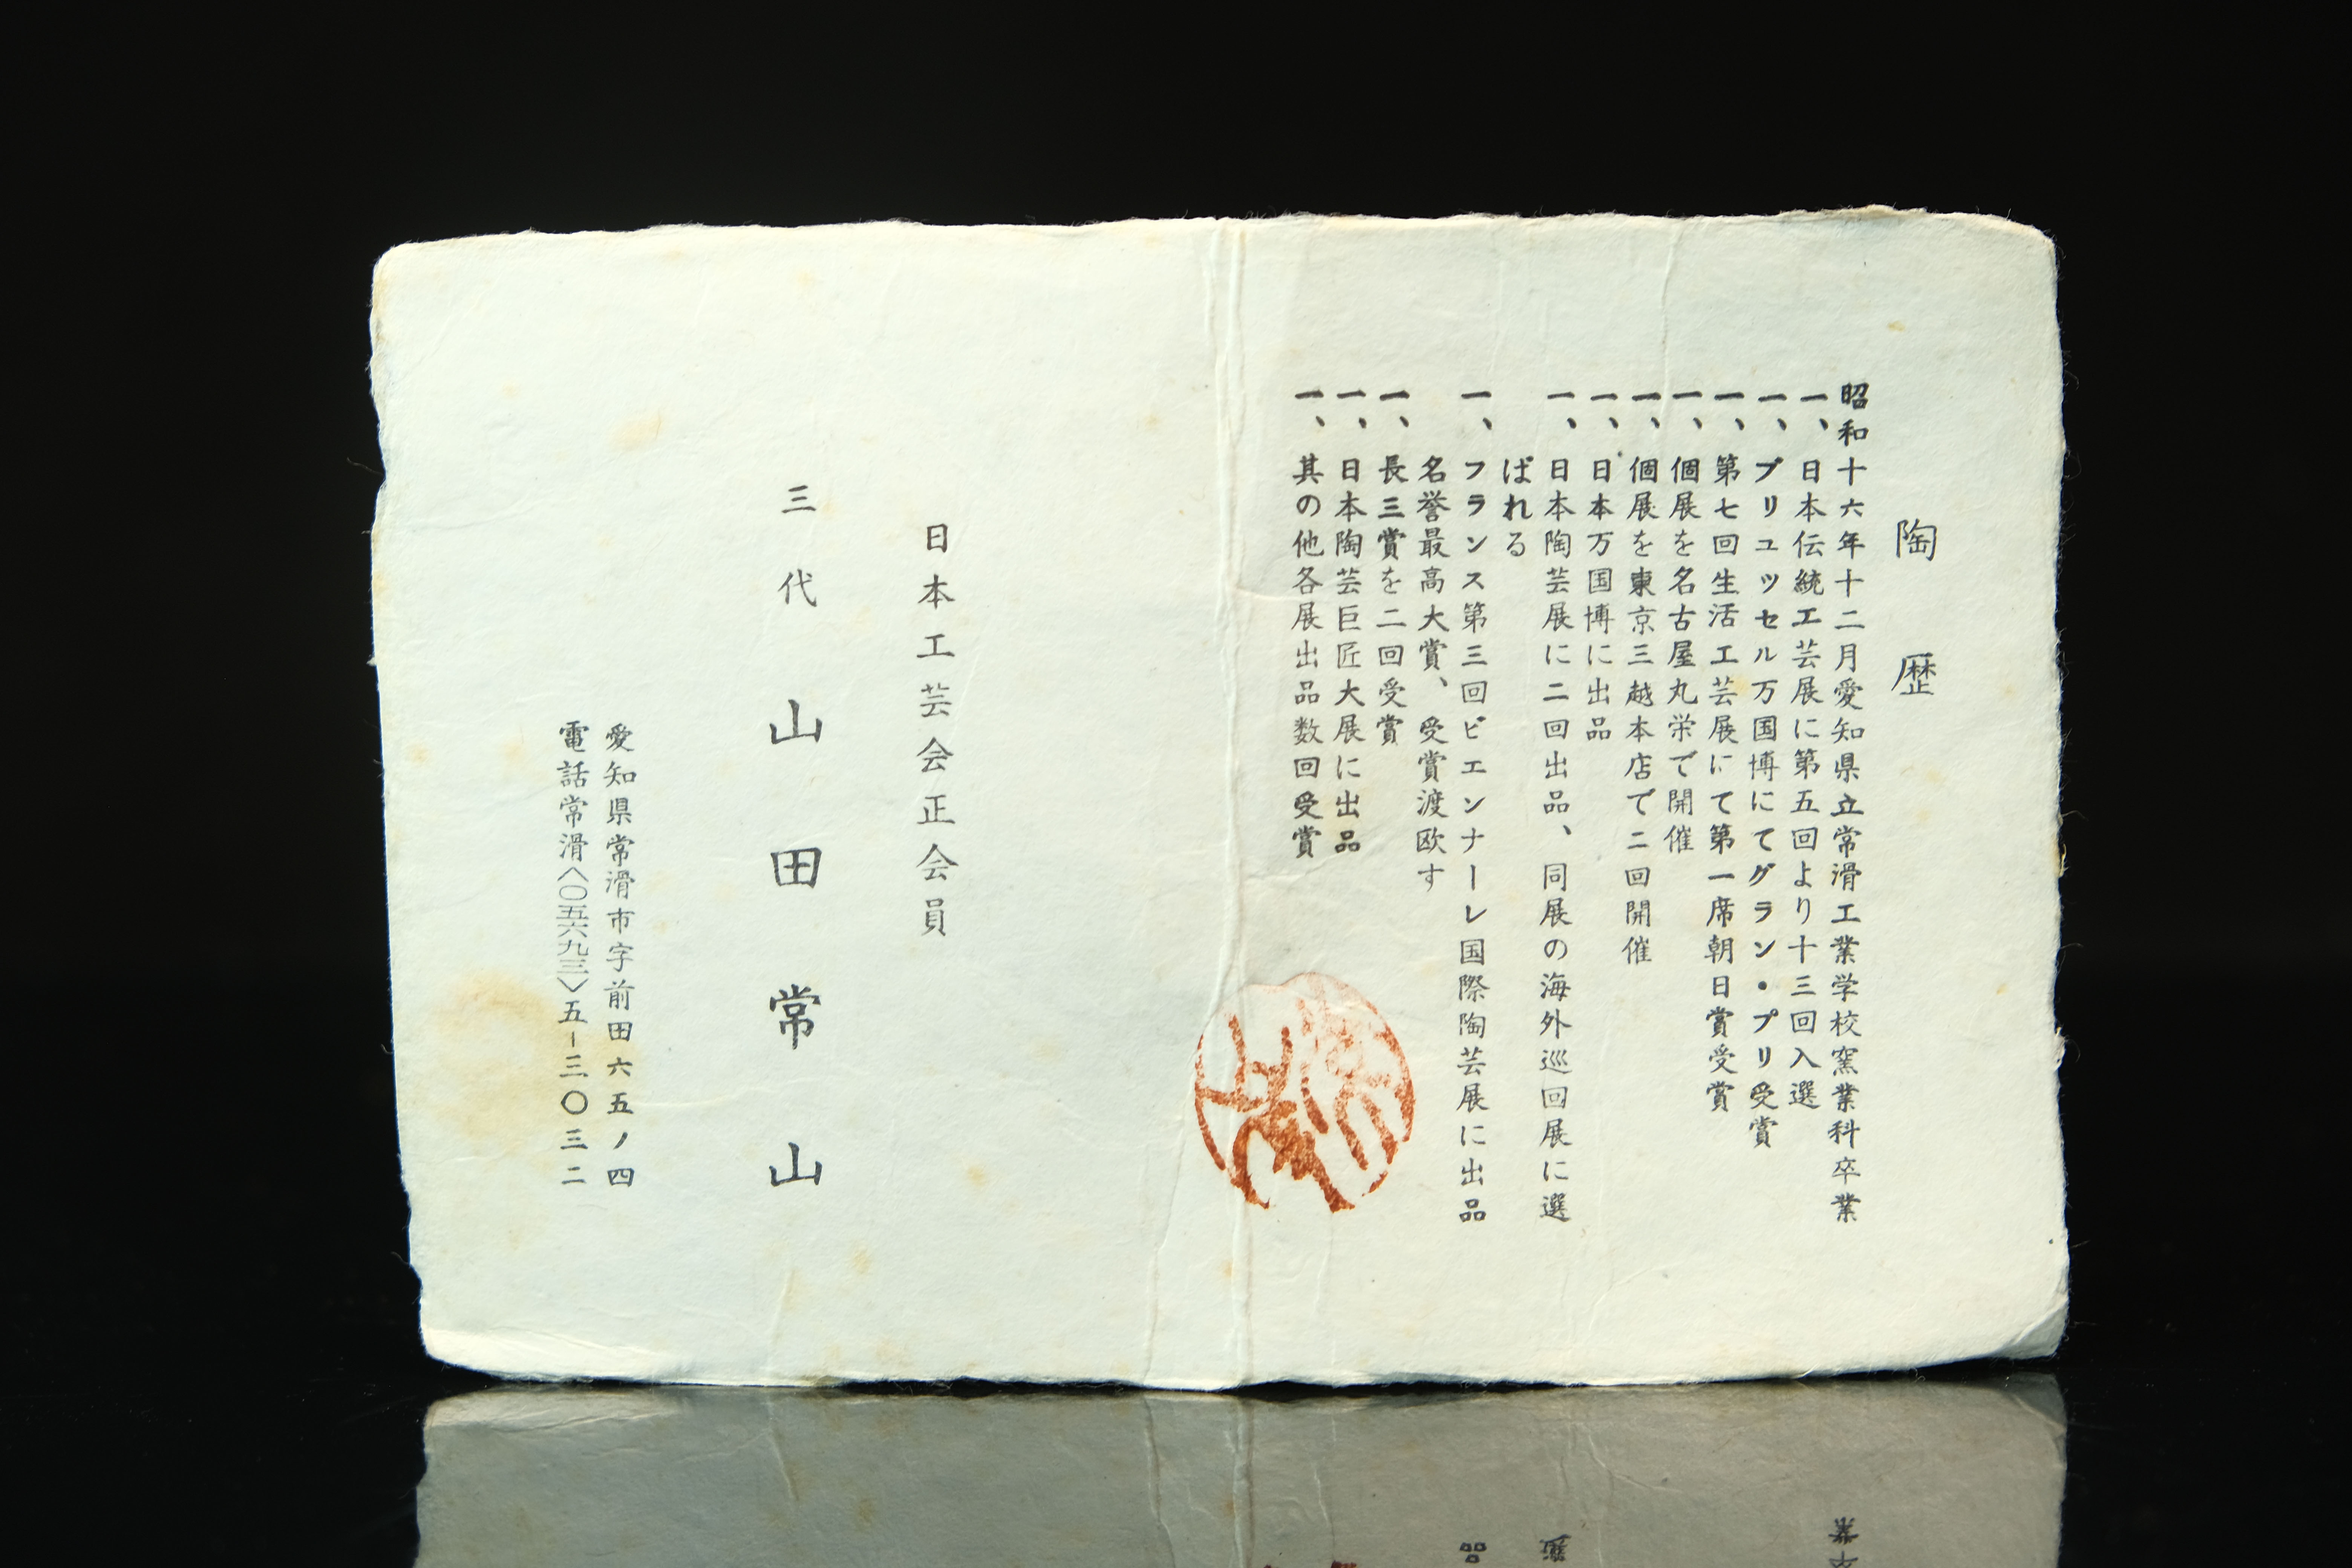 陶歴
昭和十六年十二月愛知県立常滑工業学校窯業科卒業
一、日本伝統工芸展に第五回より十三回入選
一、ブリュッセル万国博にてグラン・プリ受賞
一、第七回生活工芸展にて第一席朝日賞受賞
一、個展を名古屋丸栄で開催
一、個展を東京三越本店で二回開催
一、日本万国博に出品
一、日本陶芸展に二回出品、同展の海外巡回展に選
ばれる
一、フランス第三回ビエンナーレ国際陶芸展に出品
名誉最高大賞、受賞渡欧す
一、長三賞を二回受賞
一、日本陶芸巨匠大展に出品
一、其の他各展出品数回受賞
日本工芸会正会員
三代山田常山
愛知県常滑市字前田六五ノ四
電話常滑〈〇五六九三〉五―三〇三二